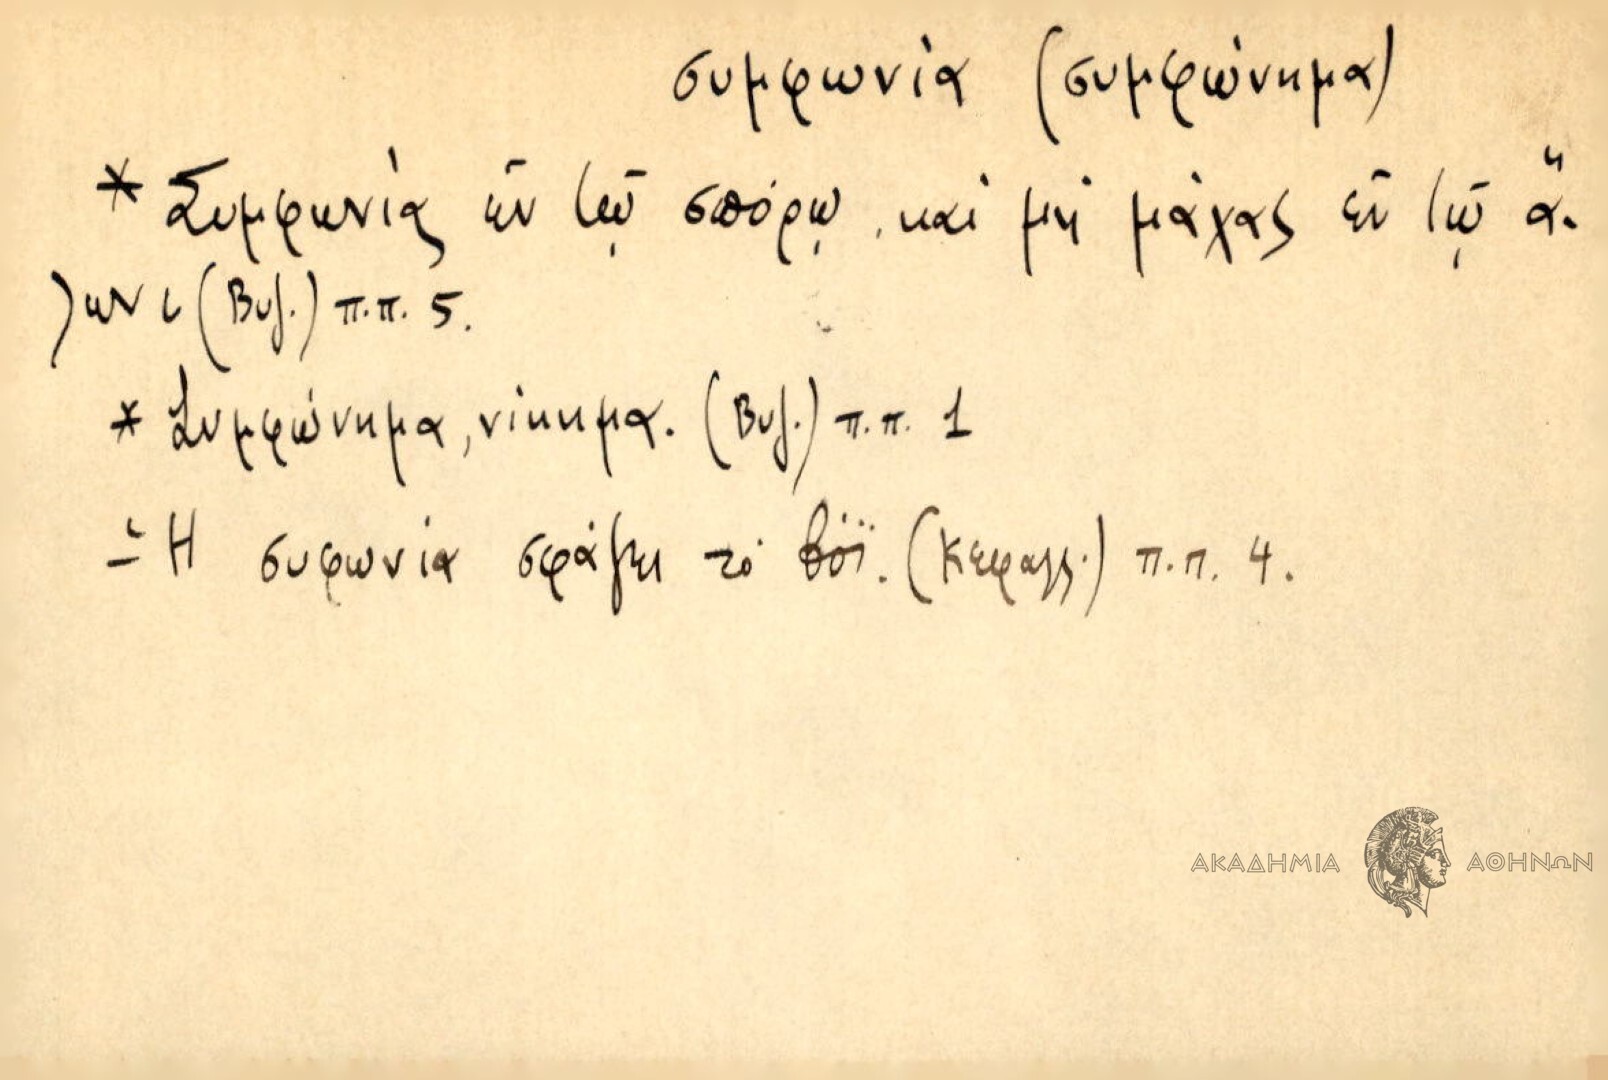 συμφωνία (συμφώνημα)
* Συμφωνίας ἐν τῷ σπόρῳ, καὶ μὴ μάχας ἐν τῷ ἅ-
λωνι (Βυζ.) π.π. 5.
* Συμφώνημα, νίκημα. (Βυζ.) π.π. 1
÷ Ἡ συφωνία σφάζει τὸ βόϊ. (Κεφαλλ.) π.π. 4.
ΑΚΑΔΗΜΙΑ ΑΘΗΝΩΝ